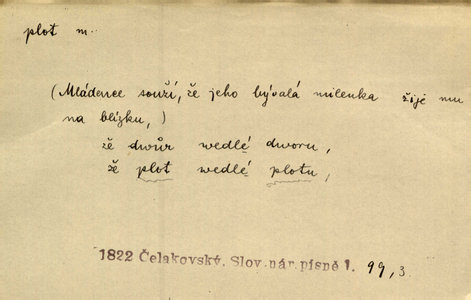 plot m.
(Mládence souží, že jeho bývalá milenka žije mu
na blízku,)
že dwůr wedlé dworu,
že plot wedlé plotu,
1822 Čelakovský, Slov. nár. písně 1. 99, 3.